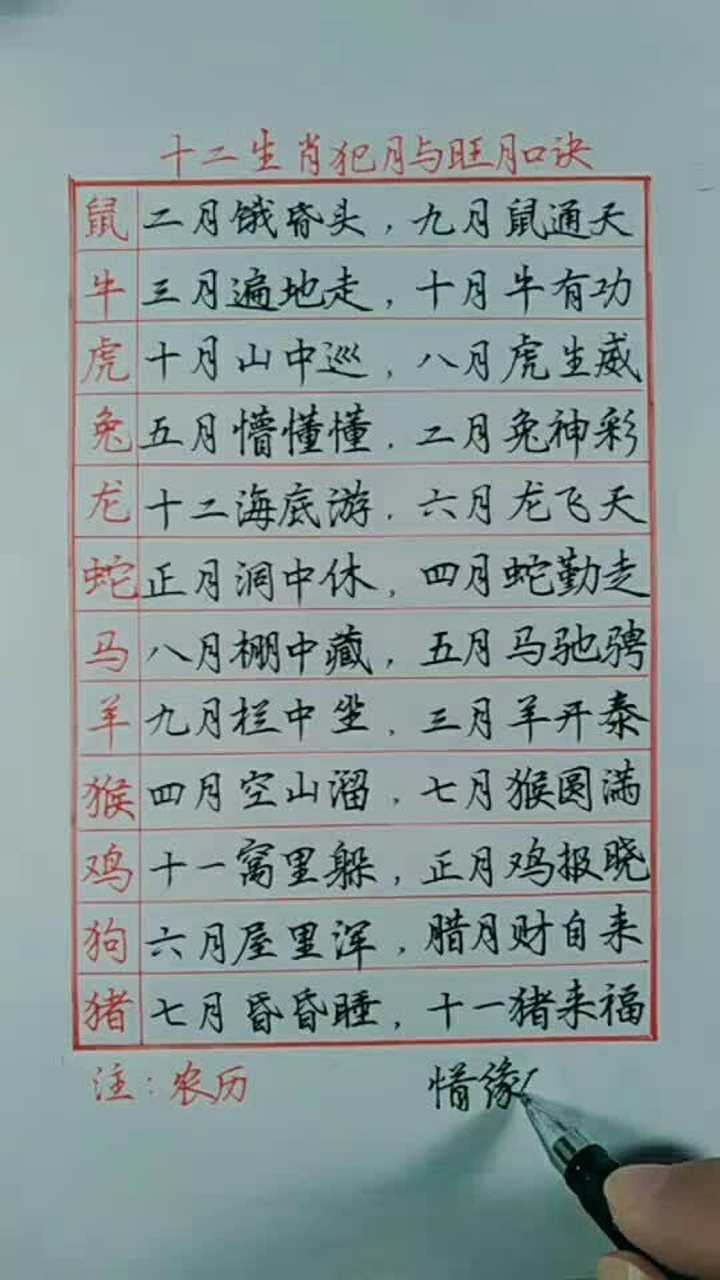 十二生肖犯月与旺月口诀
鼠 二月饿昏头，九月鼠通天
牛 三月遍地走，十月牛有功
虎 十月山中巡，八月虎生威
兔 五月懵懂懂，二月兔神彩
龙 十二海底游，六月龙飞天
蛇 正月洞中休，四月蛇勤走
马 八月棚中藏，五月马驰骋
羊 九月栏中坐，三月羊开泰
猴 四月空山溜，七月猴圆满
鸡 十一窝里躲，正月鸡报晓
狗 六月屋里浑，腊月财自来
猪 七月昏昏睡，十一猪来福
注：农历 惜缘